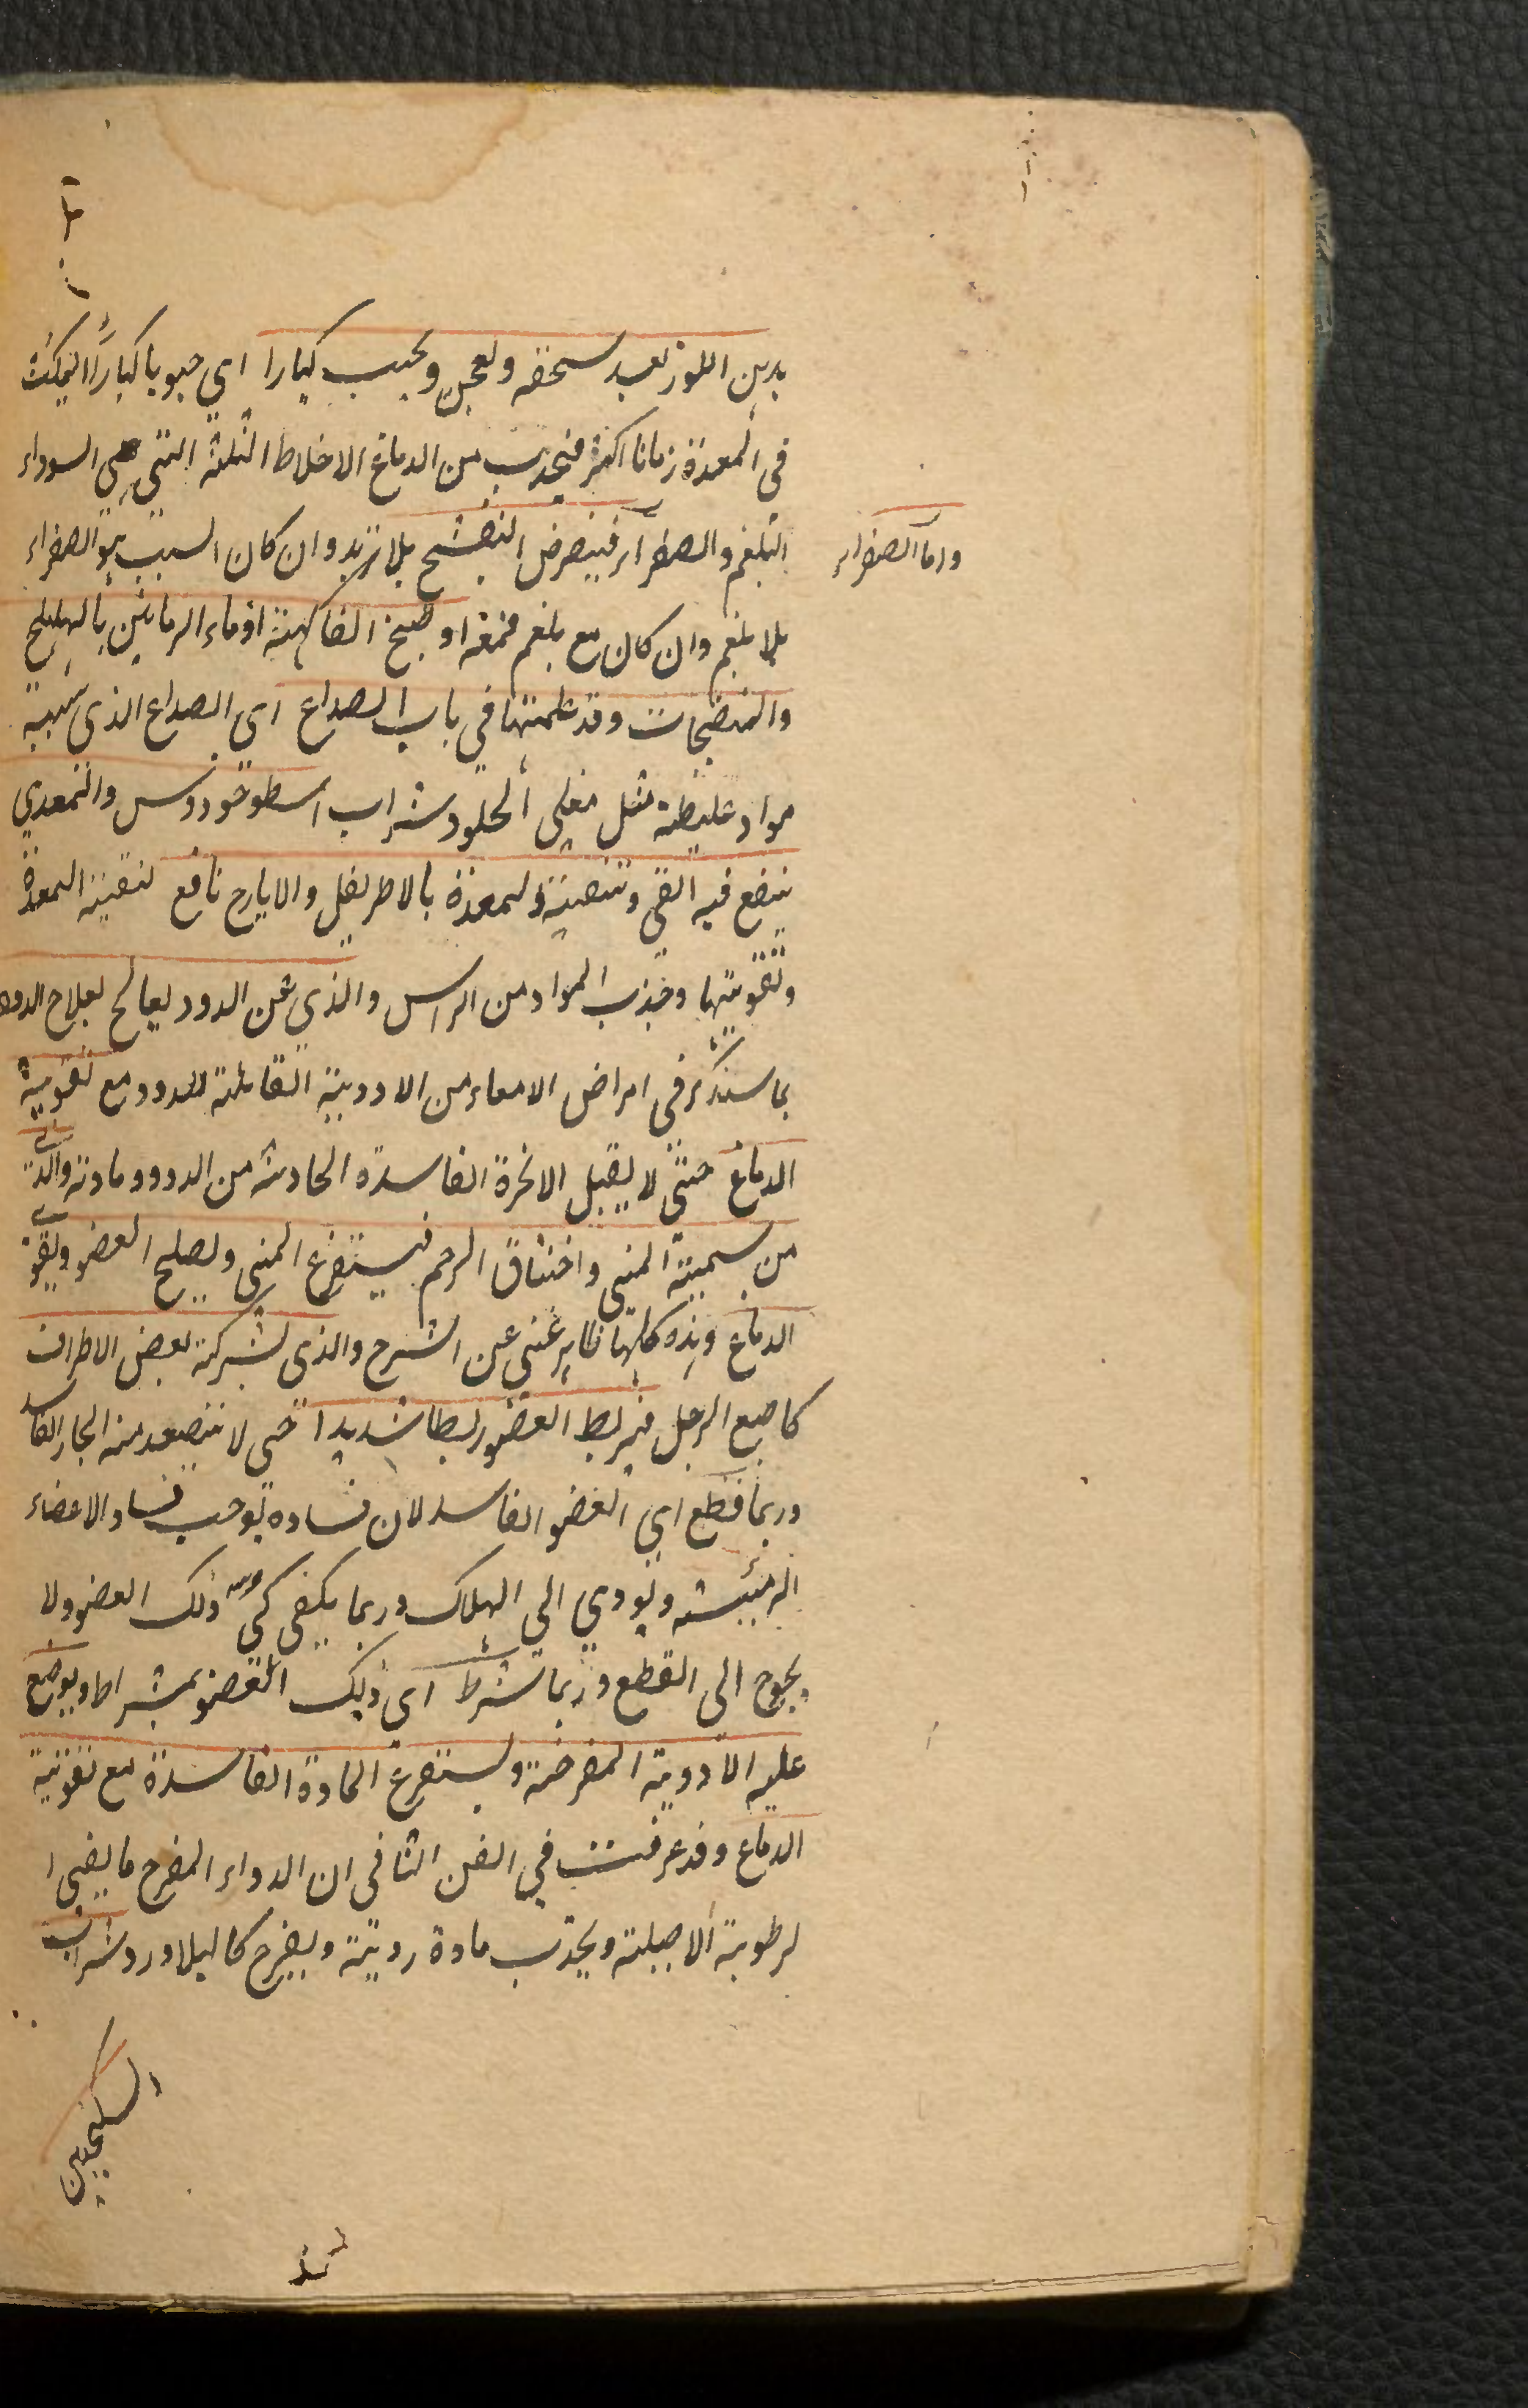 بدهن اللوز بعد سحقه ويعجن ويحبب كبارا اي حبوبا كبارا ليمكث
في المعدة زمانا اكثر فيجذب من الدماغ الاخلاط الثلثة التي هي السوداء
البلغم والصفراء فبقرص البنفسج بلا تربد وان كان السبب هو الصفراء
واما الصفراء
بلا بلغم وان كان مع بلغم فمعه او طبخ الفاكهة او ماء الرمانين بالهليلج
والمنضجات وقد علمتها في باب الصداع اي الصداع الذي سببه
مواد غليظة مثل مغلي الحلو وشراب اسطوخودوس والمعدي
ينفع فيه القي وتنقية المعدة بالاطريفل والايارج نافع لتنقية المعدة
وتقويتها وجذب المواد من الراس والذي عن الدود يعالج بعلاج الدود
بما سنذكر في امراض الامعاء من الادوية القاتلة للدود مع تقوية
الدماغ حتى لا يقبل الابخرة الفاسدة الحادثة من الدود ومادته والذي
من سمية المني واختناق الرحم فيستفرغ المني ويصلح العضو ويقوي
الدماغ وهذه كلها ظاهر غني عن الشرح والذي لشركة بعض الاطراف
كاصبع الرجل فيربط العضو ربطا شديدا حتى لا يتصعد منه البخار الفاسد
وربما قطع اي العضو الفاسد لان فساده يوجب فساد الاعضاء
الرئيسة ويودي الى الهلاك وربما يكفي كي ذلك العضو ولا
يحوج الى القطع وربما شرط اي ذلك العضو بمشراط ويوضع
عليه الادوية المقرحة ويستفرغ المادة الفاسدة مع تقوية
الدماغ وقد عرفت في الفن الثاني ان الدواء المقرح ما يفني ا
لرطوبة الاصيلة ويجذب مادة ردية ويقرح كالبلادر وشراب
السكنجبين